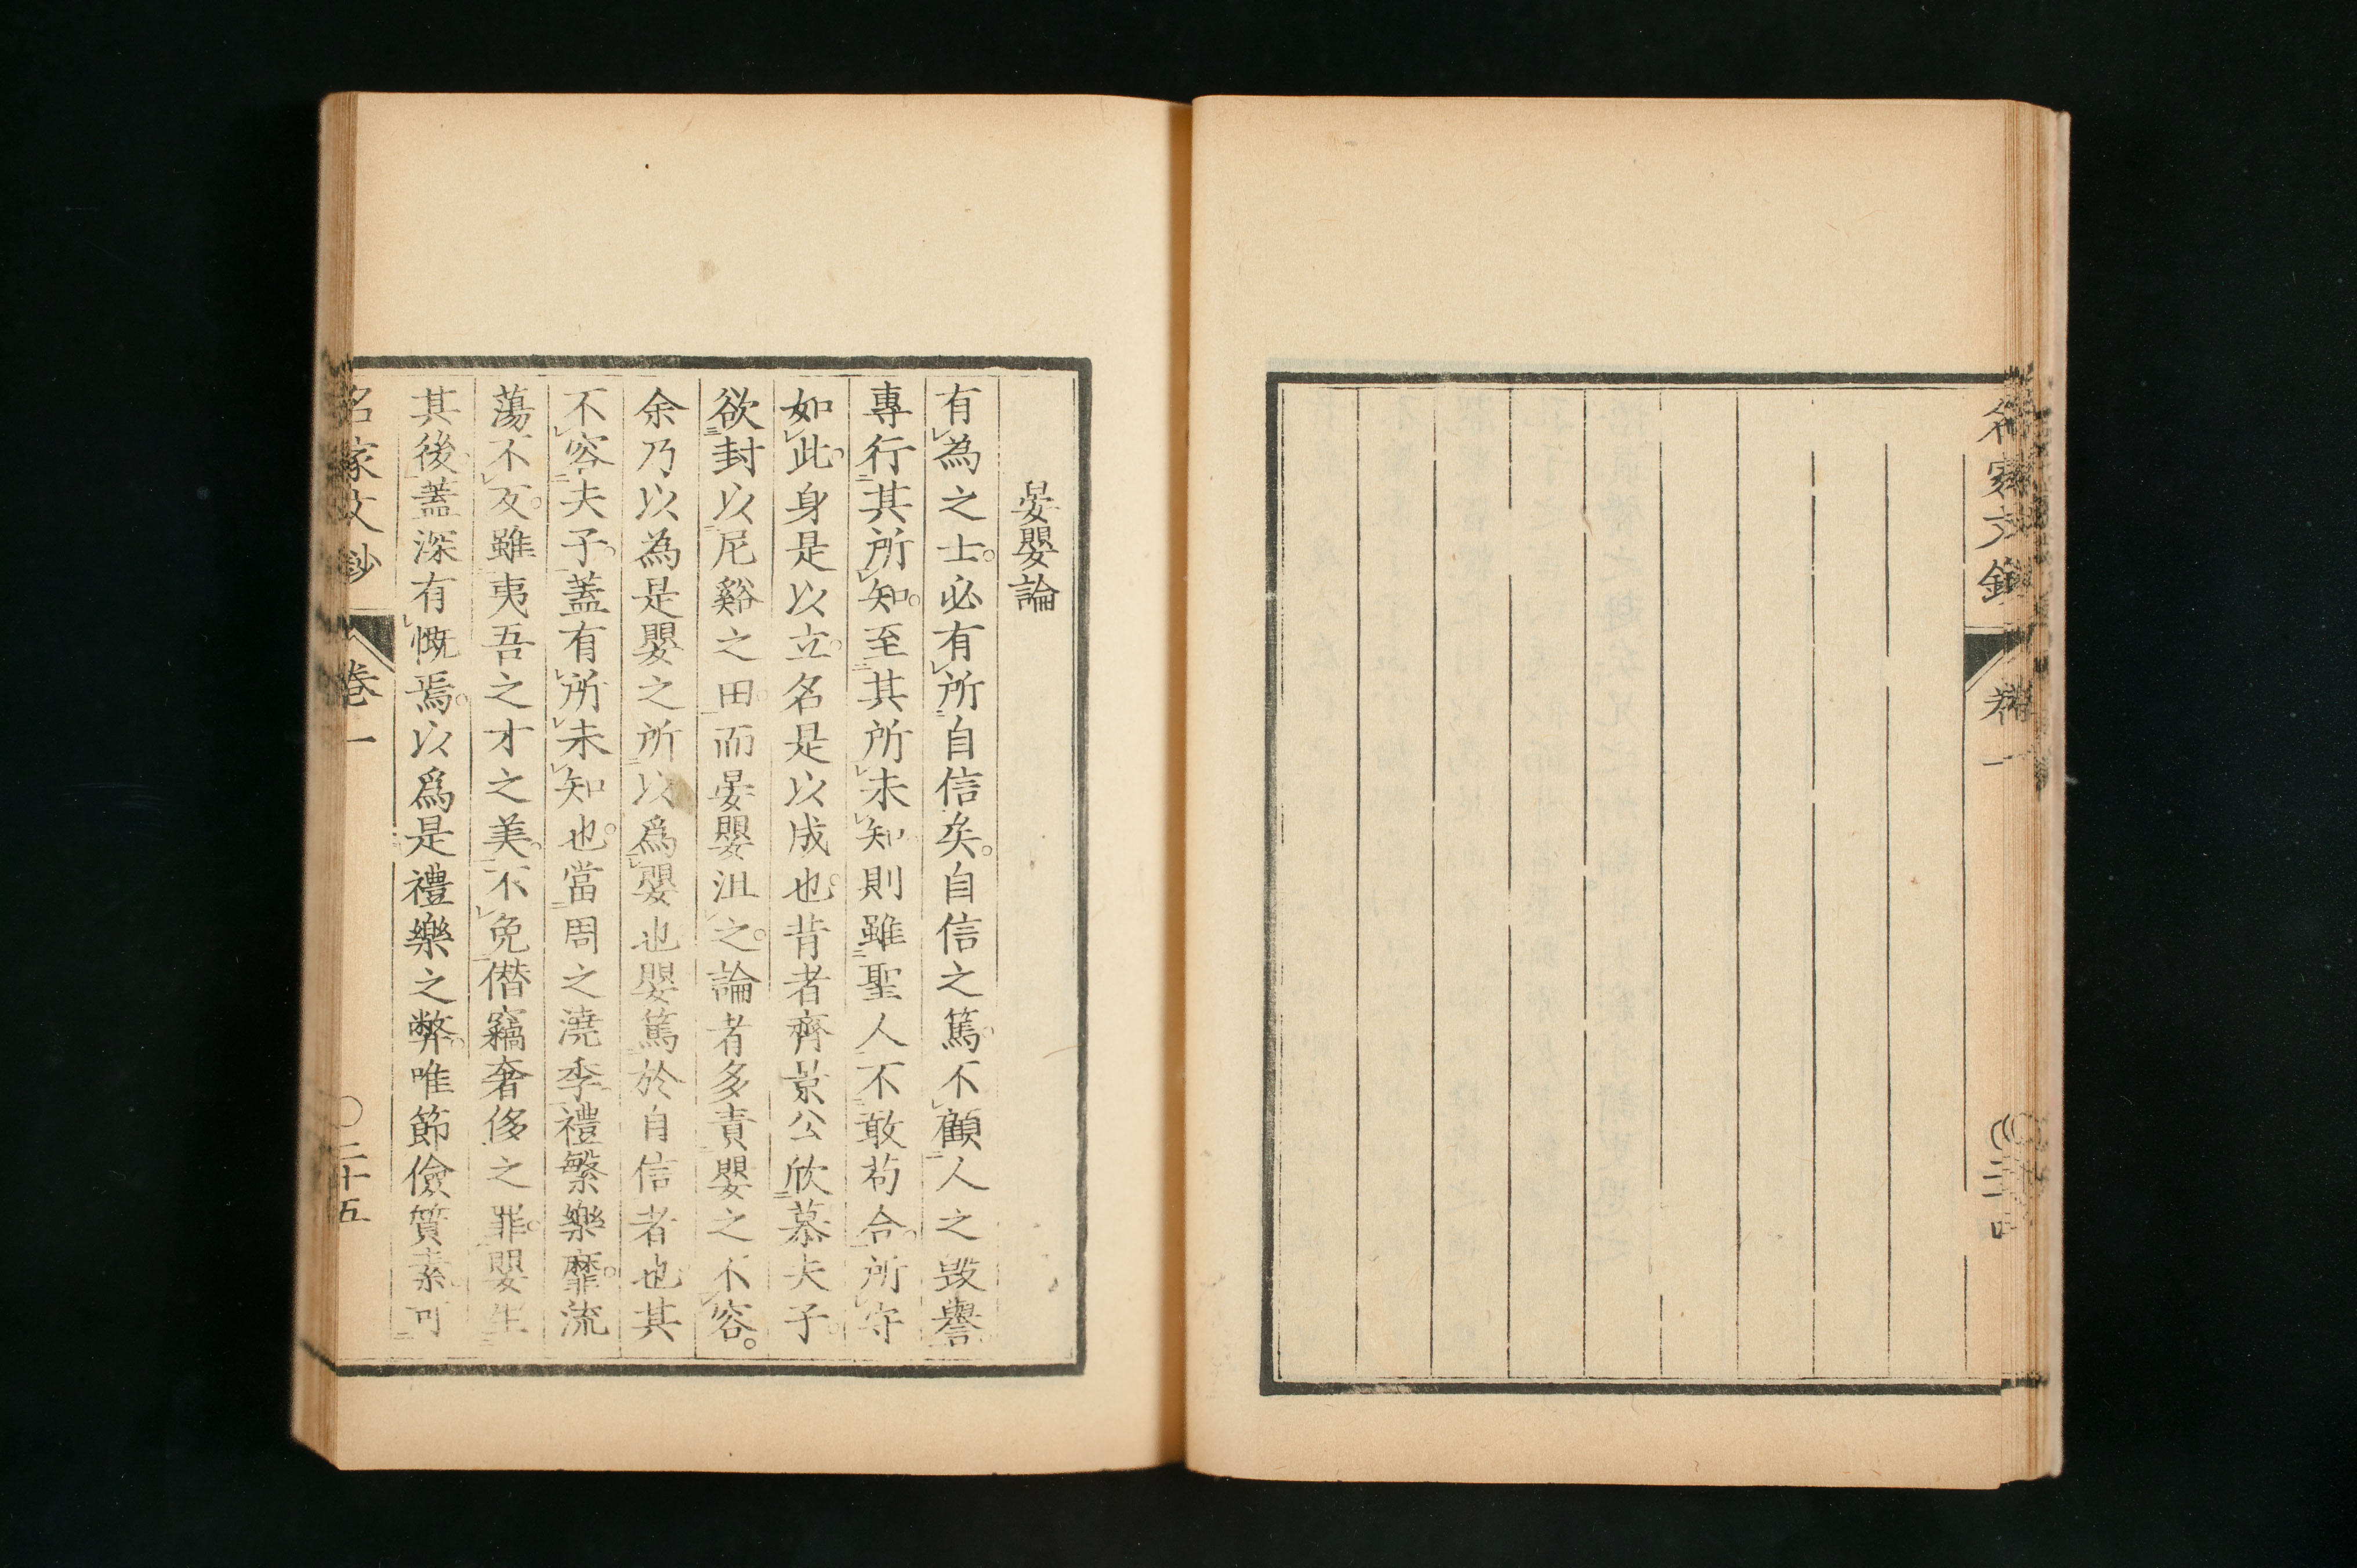 名家文鈔
卷一
〇二十四
晏嬰論
有為之士必有所自信矣自信之篤不顧人之毀譽
專行其所知至其所未知則雖聖人不敢苟合所守
如此身是以立名是以成也昔者齊景公欣慕夫子
欲封以尼谿之田而晏嬰沮之論者多責嬰之不容
余乃以為是嬰之所以爲嬰也嬰篤於自信者也其
不容夫子蓋有所未知也當周之澆季禮繁樂靡流
蕩不反雖夷吾之才之美不免僭竊奢侈之罪嬰生
其後蓋深有慨焉以爲是禮樂之弊唯節儉質素可
名家文鈔
卷一
〇二十五